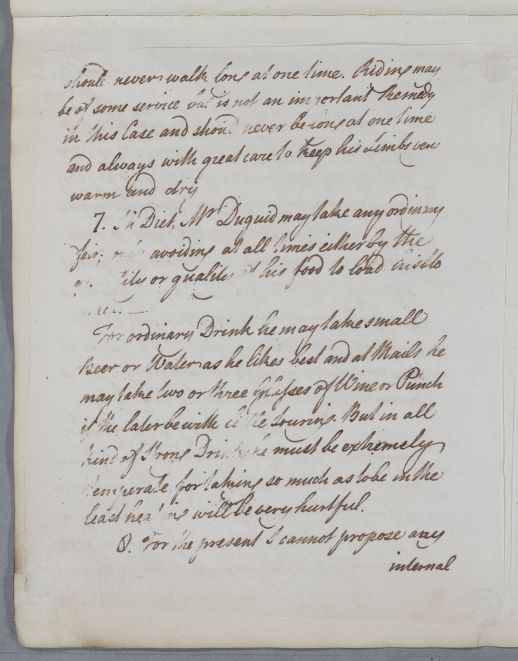 should never walk long at one time. Riding may
be of some service but is not an important Remedy
in this Case and should never be long at one time
and always with great care to keep his Limbs very
warm and dry
7. In Diet, Mr Duguid may take any ordinary
fair, only avoiding at all times either by the
quantity or quality of his food to load his sto
For ordinary Drink he may take small
Beer or Water as he likes best and at Meals he
may take two or three Glasses of Wine or Punch
if the later be with little souring. But in all
kind of strong Drink he must be extremely
temperate for taking so much as to be in the
least heating will be very hurtful.
8. For the present I cannot propose any
internal